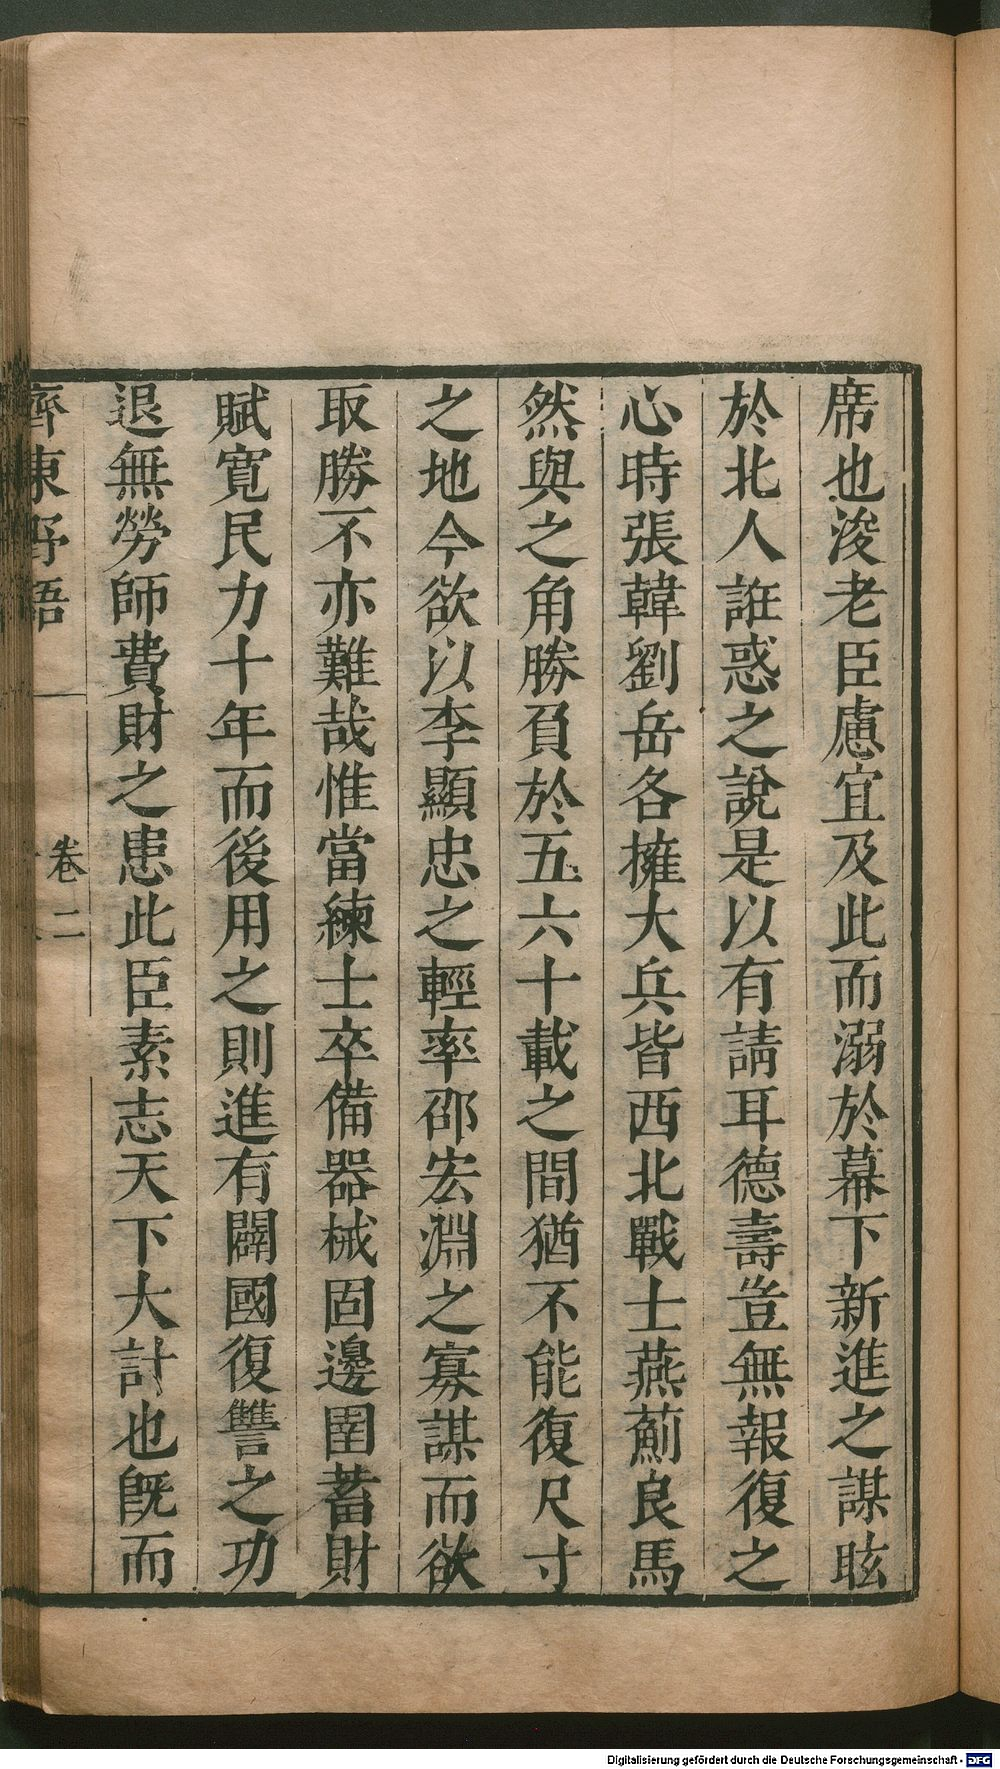 席也浚老臣慮宜及此而溺於幕下新進之謀眩
於北人誑惑之說是以有請耳德壽豈無報復之
心時張韓劉岳各擁大兵皆西北戰士燕薊良馬
然與之角勝負於五六十載之間猶不能復尺寸
之地今欲以李顯忠之輕率邵宏淵之寡謀而欲
取勝不亦難哉惟當練士卒備器械固邊圉蓄財
賦寛民力十年而後用之則進有闢國復讐之功
退無勞師費財之患此臣素志天下大計也旣而
齊東野語
卷二
Digitalisierung gefördert durch die Deutsche Forschungsgemeinschaft - DFG